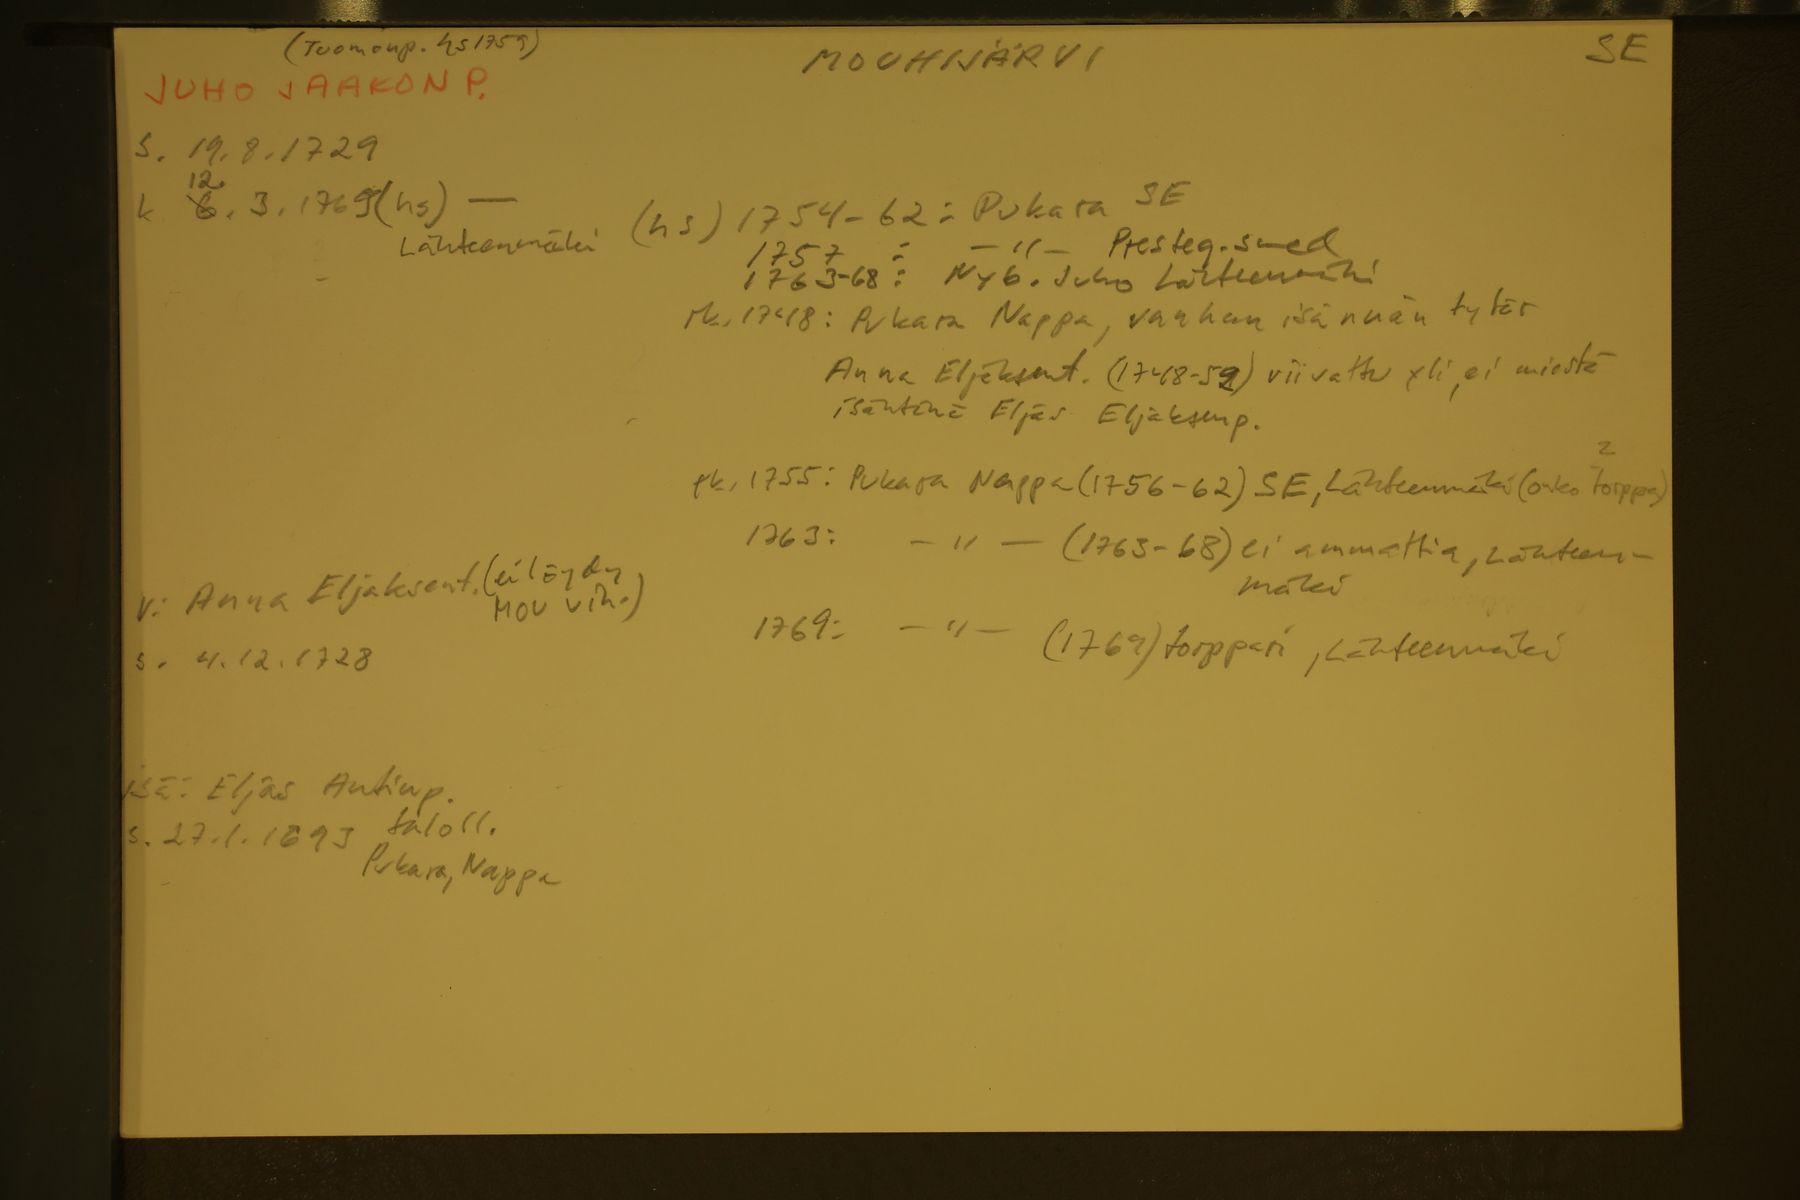 (Tuomonp. hs 1759)
MOUHIJÄRVI
SE
JUHO JAAKON P.
s. 19.8.1729
12.
k 6.3.1769 (hs) —
Lähteenmäki
(hs) 1754-62: Pukara SE
1757 : —"— Presteg. smed
1763-68: Nyb. Juho Lähteenmäki
rk. 1748: Pukara Nappa, vanhan isännän tytär
Anna Eljaksent. (1748-52) viivattu yli, ei miestä
isäntinä Eljäs Eljaksenp.
rk. 1755: Pukara Nappa (1756-62) SE, Lähteenmäki (onko torppa)
1763: —"— (1763-68) ei ammattia, Lähteen-
mäki
1769: —"— (1769) torppari, Lähteenmäki
v: Anna Eljaksent. (ei löydy
MOU vih.)
s. 4.12.1728
isä: Eljäs Antinp.
s. 27.1.1693 taloll.
Pukara, Nappa